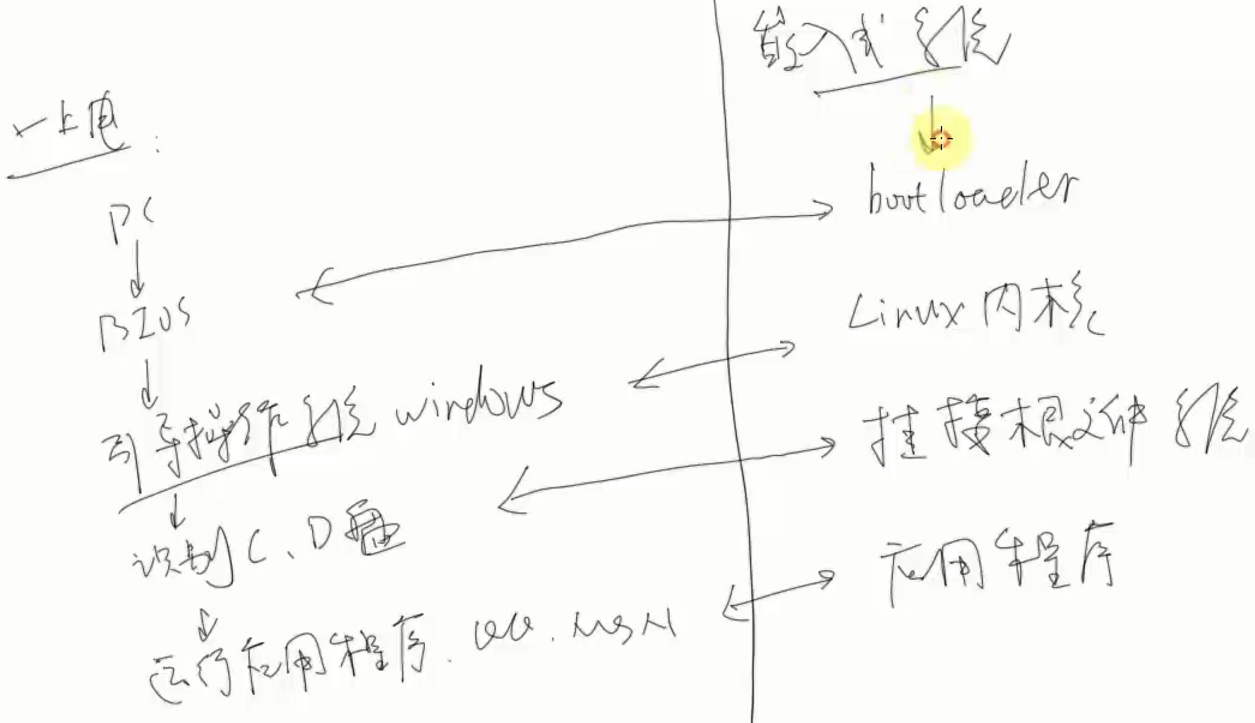 一上电:
PC
BIOS
引导操作系统 windows
识别C、D盘
运行应用程序. QQ. MSN
嵌入式系统
bootloader
Linux内核
挂接根文件系统
应用程序